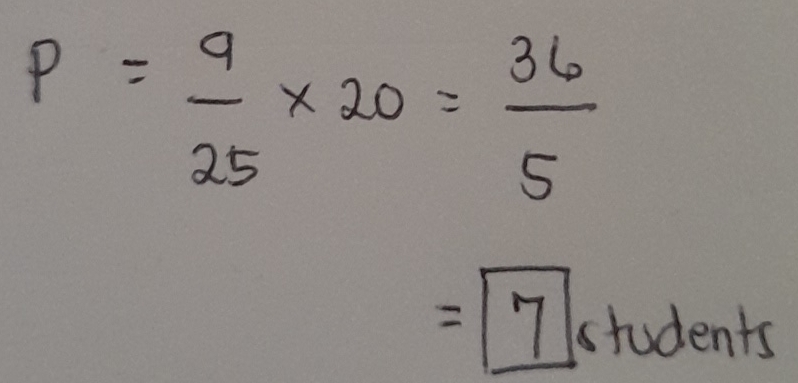 P = 9/25 × 20 = 36/5
= 7 students